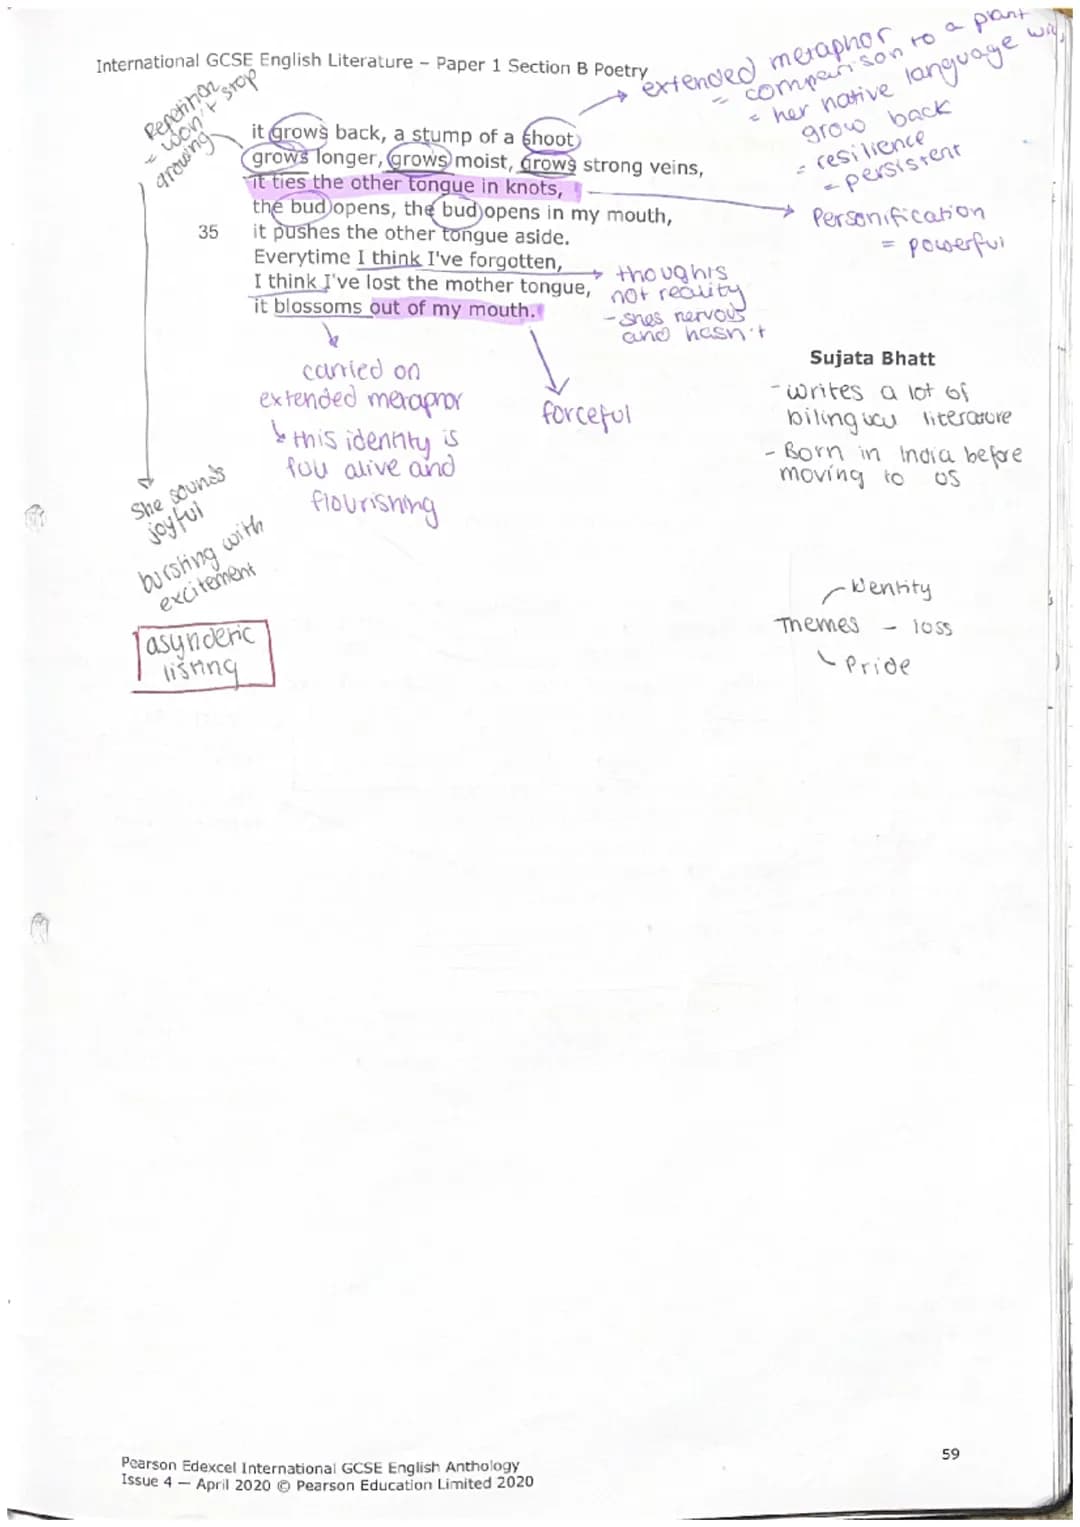 International GCSE English Literature – Paper 1 Section B Poetry
extended metaphor
= comparison to a plant
= her native language will
grow back
= resilience
- persistent
Repetition
= won't stop
growing
it grows back, a stump of a shoot
grows longer, grows moist, grows strong veins,
it ties the other tongue in knots,
the bud opens, the bud opens in my mouth,
35 it pushes the other tongue aside.
Everytime I think I've forgotten,
I think I've lost the mother tongue,
it blossoms out of my mouth.
Personification
= powerful
thoughts
not reality
- shes nervous
and hasn't
carried on
extended metaphor
↳ this identity is
full alive and
flourishing
forceful
Sujata Bhatt
- writes a lot of
bilingual literature
- Born in India before
moving to US
She sounds
joyful
bursting with
excitement
asyndetic
listing
Identity
Themes - loss
Pride
Pearson Edexcel International GCSE English Anthology
Issue 4 — April 2020 © Pearson Education Limited 2020
59